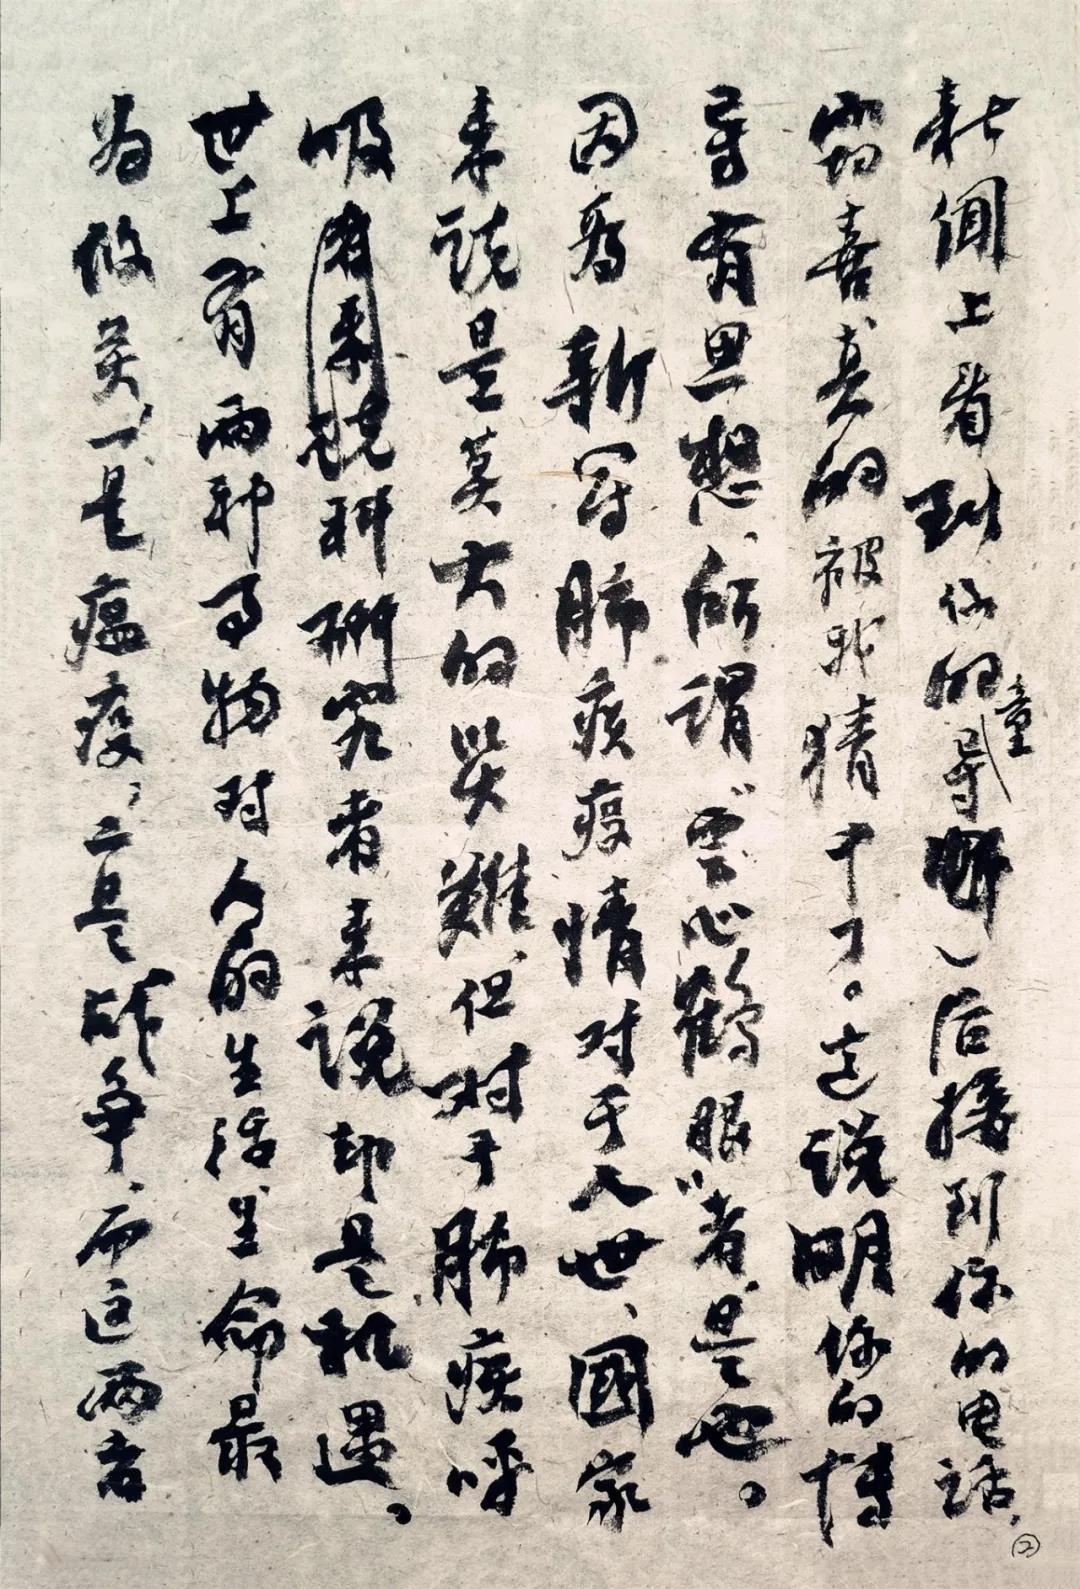 闻上看到你的童导后接到你的电话,
窃喜,真的被我猜中了。这说明你的博
导有思想、所谓“雲心鹤眼”者是也。
因爲新冠肺疾疫情对于人世、國家
来说是莫大的災難,但对于肺疾呼
吸有来科研究者来说却是机遇。
世上有两种事物对人的生活生命最
为攸关,一是瘟疫,二是战争,而这两者
②